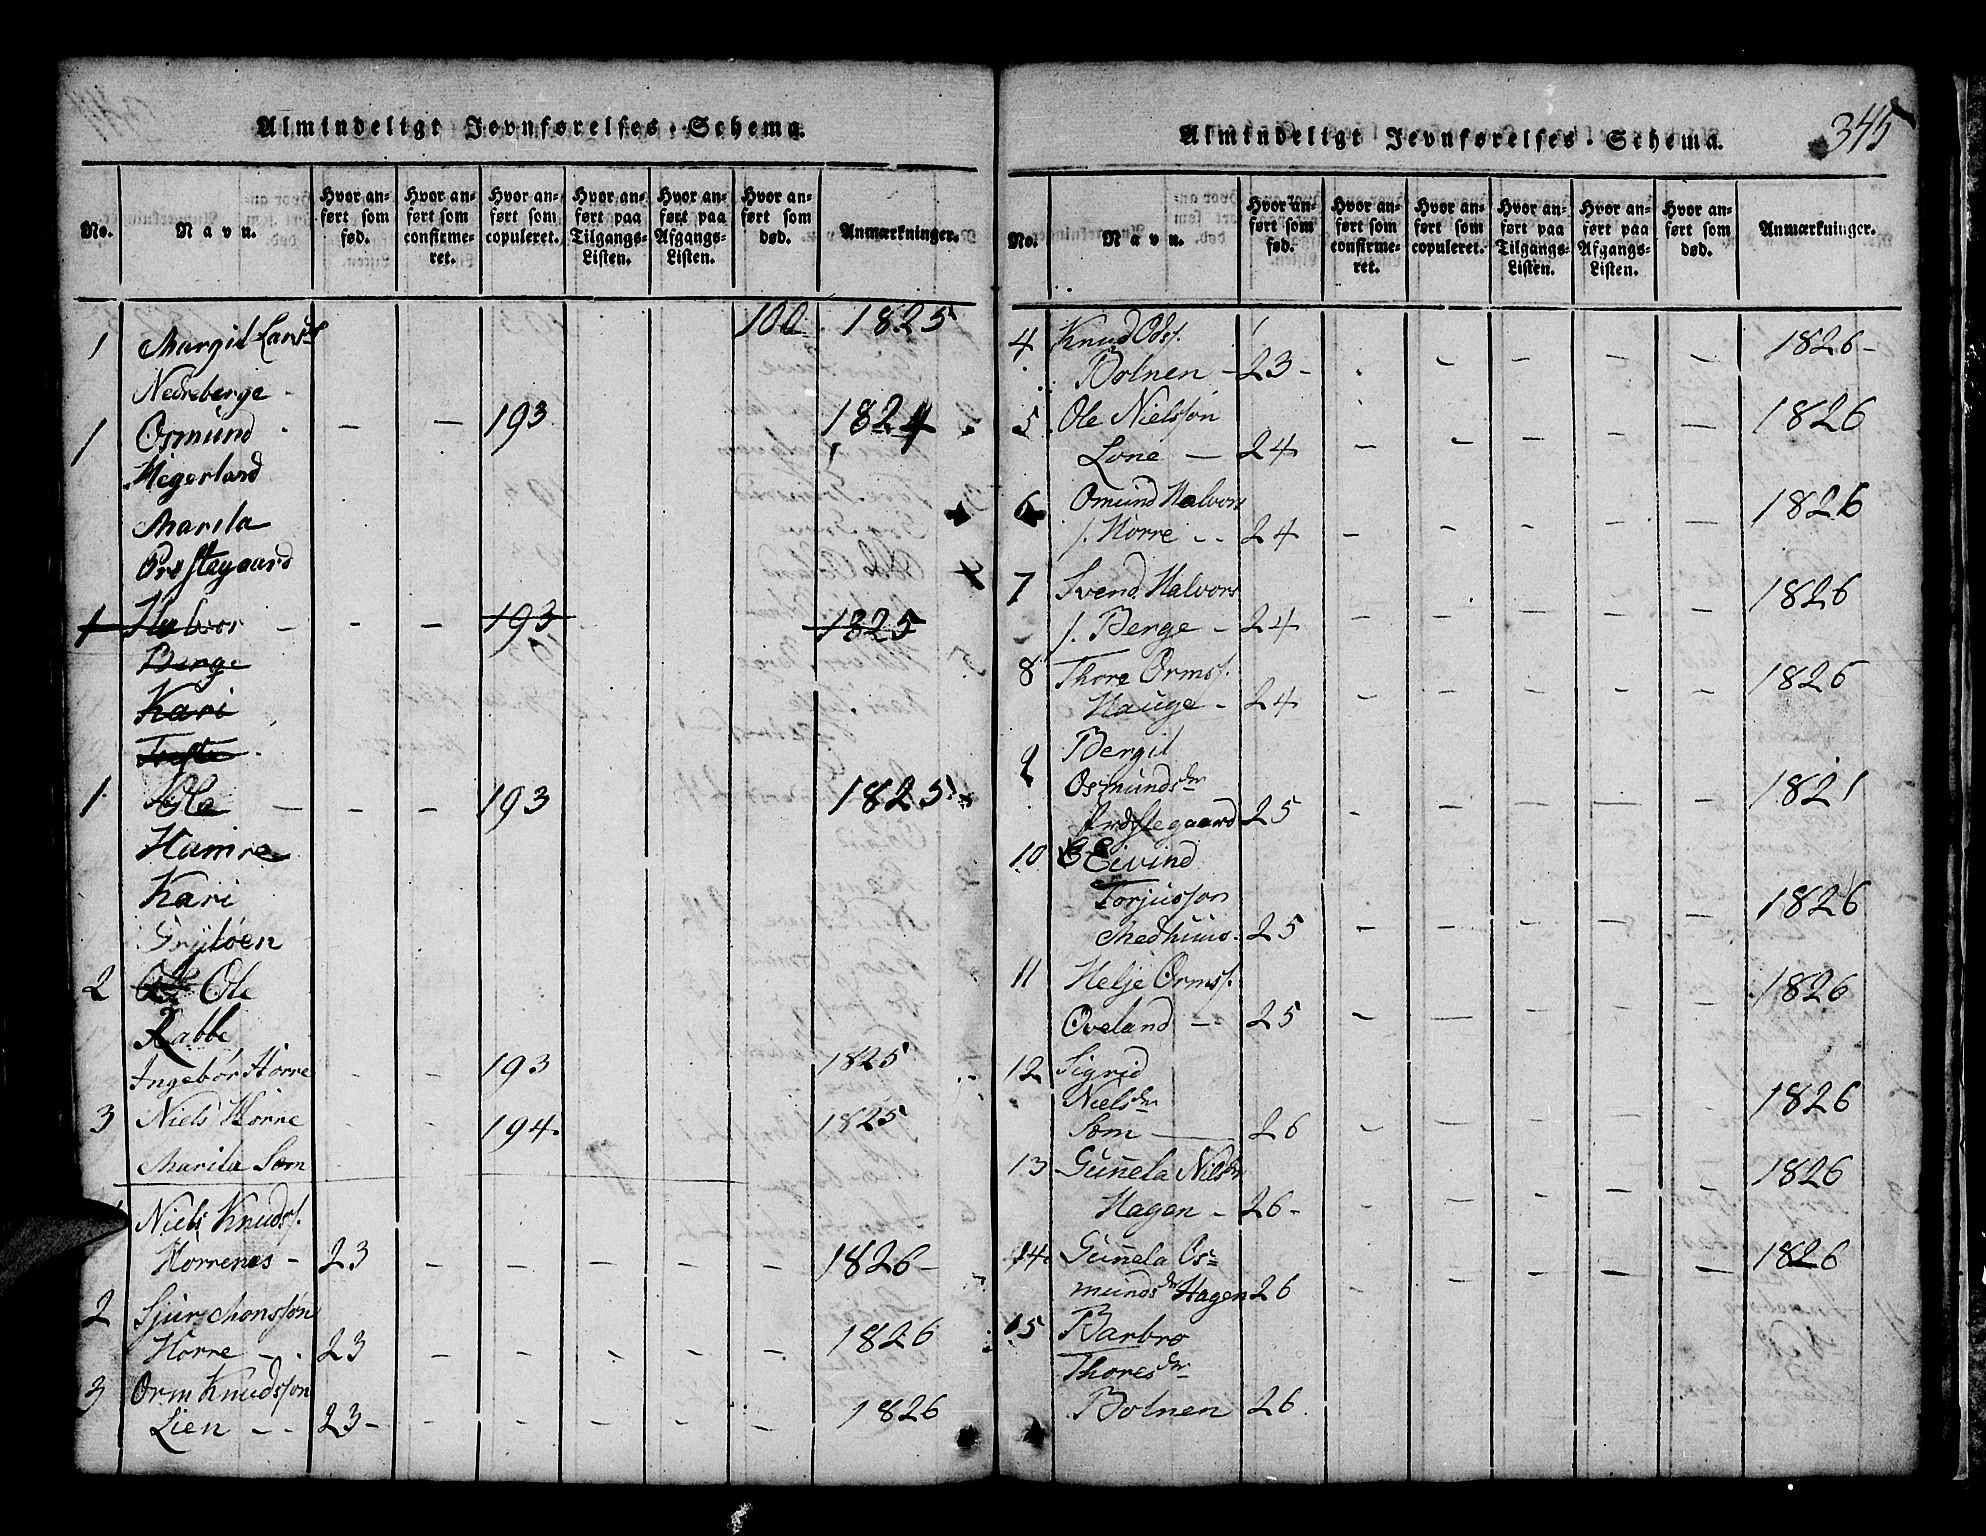 Almindeligt Jevnførelses-Schema.
No. Navn. Hvor anført som fød. Hvor anført som confirmeret. Hvor anført som copuleret. Hvor anført paa Tilgangs-Listen. Hvor anført paa Afgangs-Listen. Hvor anført som død. Anmærkninger.
1 Margit Larsd 100 1825
Nedreberge
1 Osmund - - 193 1824
Megerland
Marita
Præstegaard
1 Halvor - - - 193 1825
Berge
Kari
1 Ole - - - 193 1825
Hamre
Kari
2 Ole
Rabbe
Ingebor Hørre - - 193 1825
3 Niels Hørre - - 194 1825
Marita Søm
1 Niels Knuds.
Hørrenes - 23 - - - - - 1826 -
2 Sjur Monsson
Hørre - . 23 - - - - - 1826
3 Orm Knudsson
Lien - - 23 - - - - - - 1826
345
Almindeligt Jevnførelses-Schema.
No. Navn. Hvor anført som fød. Hvor anført som confirmeret. Hvor anført som copuleret. Hvor anført paa Tilgangs-Listen. Hvor anført paa Afgangs-Listen. Hvor anført som død. Anmærkninger.
4 Knud Ods. 1826 -
Bolnen - 23 - - - - - -
5 Ole Nielsson 1826
Lone - 24 - - - - -
6 Omund Halvors 1826
s. Hørre - - 24 - - - - -
7 Svend Halvors 1826
s. Berge - 24 - - - - -
8 Thore Orms. 1826
Hauge - 24 - - - - -
9 Bergit
Osmundsdr 1821
Præstegaard 25 - - - - -
10 Eivind
Torjusson 1826
Medhuus. 25 - - - - -
11 Helje Orms. 1826
Qveland - - 25 - - - - -
12 Sigrid
Nielsdr 1826
Søm - 26 - - - - -
13 Guñela Nielsdr 1826
Hagen - 26 - - - - -
14 Guñela Os= 1826
mundsdr Hagen 26 - - - - -
15 Barbro
Thoresdr
Bolnen 26.